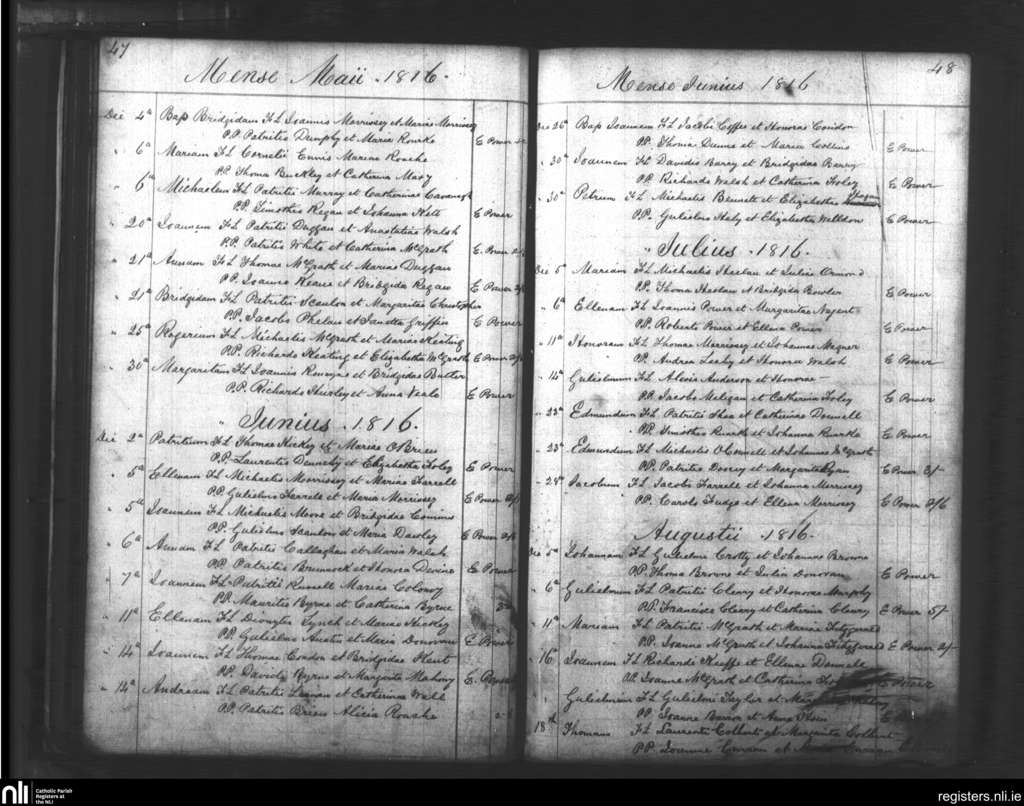 47
Mense Maii 1816.
Die 4a Bap Bridgidam FL Joannis Morrissey et Mariae Morrissey
PP. Patritis Dunphy et Maria Rourke E Power
" 6a Mariam FL Cornelii Ennis Mariae Roache
PP. Thoma Buckley et Catherina Mary
" 6a Michaelem FL Patritii Murray et Catherinae Cavenagh
PP. Timotheo Regan et Johanna Kett E Power
" 20a Joannem FL Patritii Duggan et Anastatiae Walsh
P.P. Patritis White et Catherina McGrath E Power
" 21a Annam FL Thomae McGrath et Mariae Duggan
PP. Joanne Keane et Bridgida Regan E Power
" 21a Bridgidam FL Patritii Scanlon et Margaritae Christopher
PP. Jacobo Phelan et Griffin E Power
" 25a Rogerium FL Michaelis McGrath et Mariae Keating
PP. Richardo Keating et Elizabetha McGrath E Power
" 30a Margaritam FL Joannis et Bridgidae Butler
P.P. Richardo Shirley et Anna Neale E Power
" Junius . 1816.
Die 2a Patritium FL Thomae Hickey et Mariae OBrien
P.P. Laurentio Dennehy et Elizabetha Foley E Power
" 5a Ellenam FL Michaelis Morrissey et Mariae Farrell
PP. Gulielmo Farrell et Maria Morrissey E Power
" 5a Joannem FL Michaelis Moore et Bridgidae
PP. Gulielmo Scanlon et Maria Dawley E Power
" 6a Annam FL Patritii Callaghan et Maria Walsh
PP. Patritio Brunnock et Honora Devine E Power
" 7a Joannem FL Patritii Russell Mariae Colonoy
PP. Mauritio Byrne et Catherina Byrne
" 11a Ellenam FL Lynch et Mariae Hickey
PP. Gulielmo Austin et Maria Donovan E Power
" 14a Joannem FL Thomae Condon et Bridgidae Hunt
PP. David Byrne et Margarita Mahony E Power
" 14a Andream FL Patritii Lannan et Catherinae Wall
PP. Patritio Brien Alicia Roache
48
Mense Junius 1816
Die 26a Bap Joannem FL Jacobi Coffee et Honorae Condon
PP. Thoma Dunne et Maria Collins E Power
" 30a Joannem FL Davidis Barry et Bridgidae Barry
PP. Richardo Walsh et Catherina Foley E Power
" 30a Petrum FL Michaelis Bennett et Elizabethae
PP. Gulielmo Healy et Elizabetha Welldon E Power
" Julius . 1816.
Die 5a Mariam FL Michaelis Heelan et Juliae Ormond
P.P. Thoma Heelan et Bridgida Bowler E Power
" 6a Ellenam FL Joannis Power et Margaritae Nugent
P.P. Roberto Power et Ellena Power E Power
" 11a Honoram FL Thomae Morrissey et Johannae Magner
PP. Andrea Leahy et Honora Walsh E Power
" 14a Gulielmum FL Alexis Anderson et Honorae
PP. Jacobo Meligan et Catherina Foley E Power
" 22a Edmundum FL Patritii Shea et Catherinae Donnell
PP. Timotheo Ruark et Johanna Ruarke E Power
" 23a Edmundum FL Michaelis OConnell et Johannae McGrath
PP. Patritio Doocy et Margarita Ryan E Power 5/-
" 28a Jacobum FL Jacobi Farrell et Johanna Merriney
PP. Carolo Fudge et Ellena Merriney E Power 2/6
Augustii . 1816.
Die 5a Johannam FL Gulielmi Crotty et Johannae Browne
PP. Thoma Browne et Julia Donovan E Power
" 6a Gulielmum FL Patritii Cleary et Honorae Murphy
PP. Francisco Cleary et Catherina Cleary E Power 5/-
" 11a Mariam FL Patritii McGrath et Mariae Fitzgerald
PP. Joanne McGrath et Johanna Fitzgerald E Power 2/-
" 16a Joannem FL Richardi Keeffe et Ellenae Donnell
PP. Joanne McGrath et Catherina E Power
" Gulielmum FL Gulielmi Taylor et
PP. Joanne Barron et Anna
18th Thomam FL Laurentii Collent et Margarita Collent
PP. Joanne et
nli Catholic Parish
Registers at
the NLI
registers.nli.ie